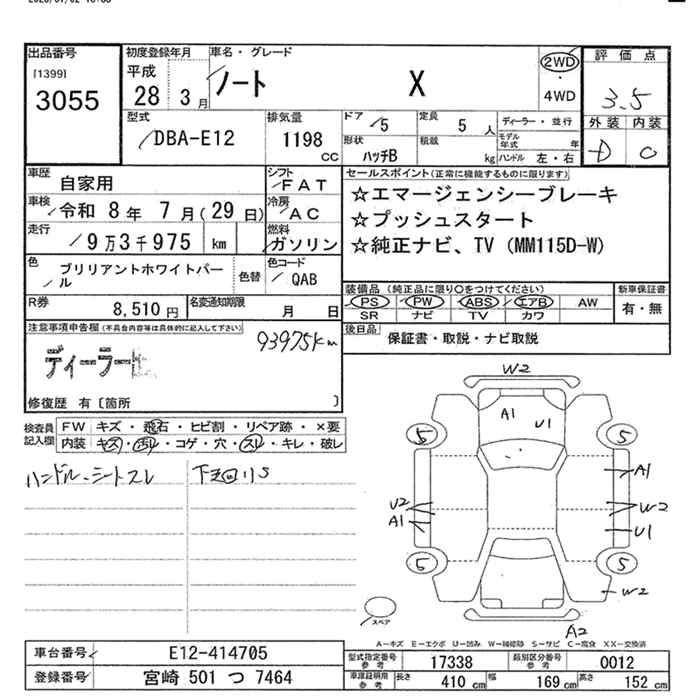 出品番号
[1399]
3055
初度登録年月
平成
28 3月
車名・グレード
ノート X
2WD
4WD
評価点
3.5
外装 内装
D C
型式
DBA-E12
排気量
1198
CC
ドア
5
定員
5人
ディーラー・並行
モデル年式 年
形状
ハッチB
積載
kg
ハンドル 左・右
車歴
自家用
シフト
FAT
車検
令和 8年 7月(29日)
冷房
AC
走行
9万3千975 km
燃料
ガソリン
色
ブリリアントホワイトパール
色替
色コード
QAB
R券
8,510円
名変通知期限
月 日
セールスポイント(正常に機能するものに限ります)
☆エマージェンシーブレーキ
☆プッシュスタート
☆純正ナビ、TV (MM115D-W)
装備品 (純正品に限り○をつけてください)
PS PW ABS エアB AW
SR ナビ TV カワ
新車保証書
有・無
後日品
保証書・取説・ナビ取説
注意事項申告欄(不具合内容等は具体的に記入して下さい)
93975km
ディーラー
修復歴 有〔箇所 〕
検査員記入欄
FW キズ・飛石・ヒビ割・リペア跡・×要
内装 キズ・汚れ・コゲ・穴・スレ・キレ・破レ
ハンドル、シートスレ
下回りS
W2
A1 U1
5 5
A1
U2
A1
W2
U1
5 5
W2
スペア
A2
A-キズ E-エクボ U-凹み W-補修跡 S-サビ C-腐食 XX-交換済
車台番号
E12-414705
登録番号
宮崎 501 つ 7464
型式指定番号
参考
17338
類別区分番号
参考
0012
車庫証明用
参考
長さ
410 cm
幅
169 cm
高さ
152 cm